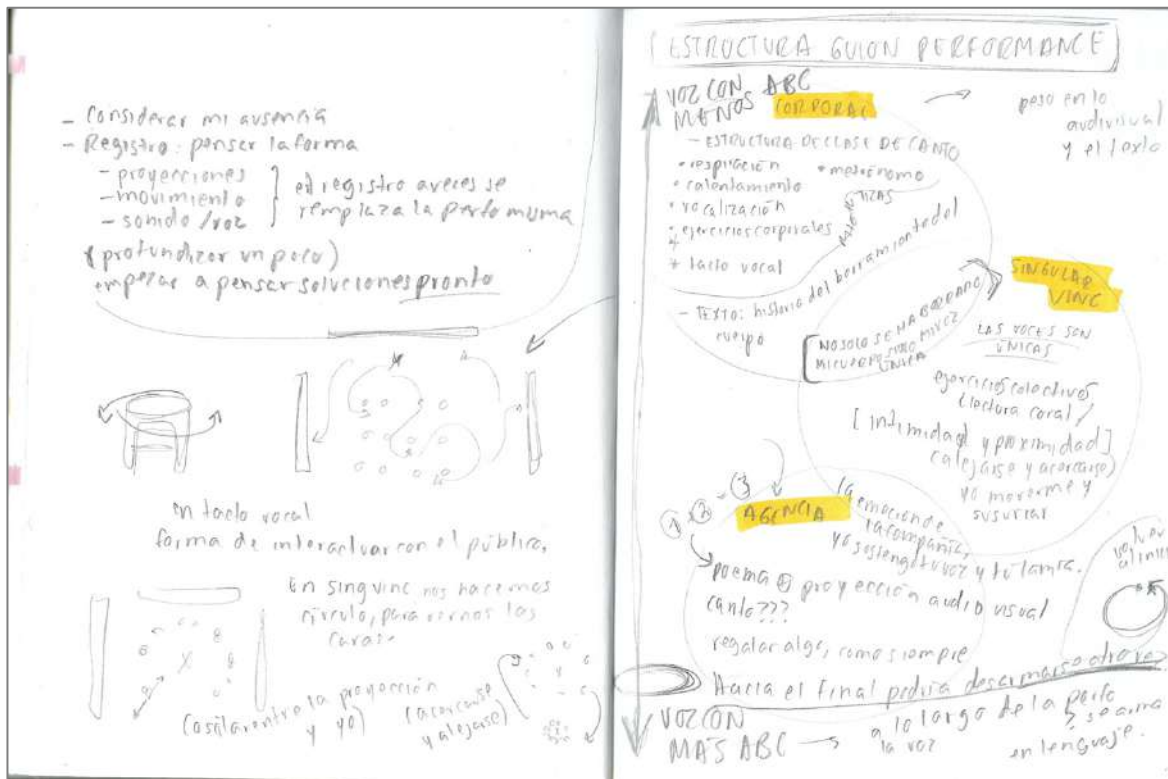 - Considerar mi ausencia
- Registro: pensar la forma
- proyecciones
- movimiento
- sonido/voz
el registro a veces se
remplaza la perfo misma
(profundizar un poco)
empezar a pensar soluciones pronto
en tacto vocal
forma de interactuar con el público,
En singvinc nos hacemos
círculo, para vernos las
caras.
(oscilar entre la proyección
y yo)
(acercarse
y alejarse)
ESTRUCTURA GUION PERFORMANCE
VOZ CON ABC
MENOS
CORPORAL
peso en lo
audiovisual
y el texto
- ESTRUCTURA DE CLASE DE CANTO
• respiración
• metrónomo
• calentamiento
• vocalización
• ejercicios corporales
* tacto vocal
- TEXTO: historia del borramiento del
cuerpo
NO SOLO SE HA BORRADO
MI CUERPO SINO MI VOZ
ÚNICA
SINGULAR
VINC
LAS VOCES SON
ÚNICAS
ejercicios colectivos
lectura coral /
[intimidad y proximidad]
(alejarse y acercarse)
yo moverme y
susurrar
1 - 2 - 3
AGENCIA
la emoción de
la compañía,
yo sostengo tu voz y tú la mía.
poema proyección audio visual
canto???
regalar algo, como siempre
volver
al inicio
Hacia el final podría desarmarse otra vez
VOZ CON
MAS ABC
a lo largo de la perfo
la voz se arma
en lenguaje.